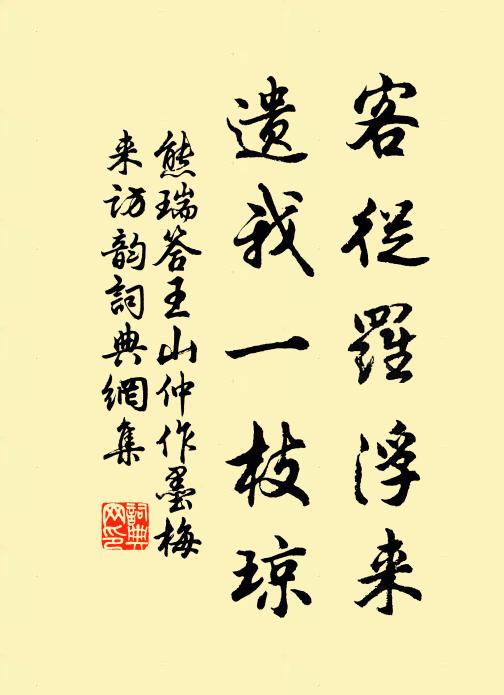 客從羅浮来
遺我一枝琼
熊瑞答王山仲作墨梅
来訪韵詞典網集
詞典
网印